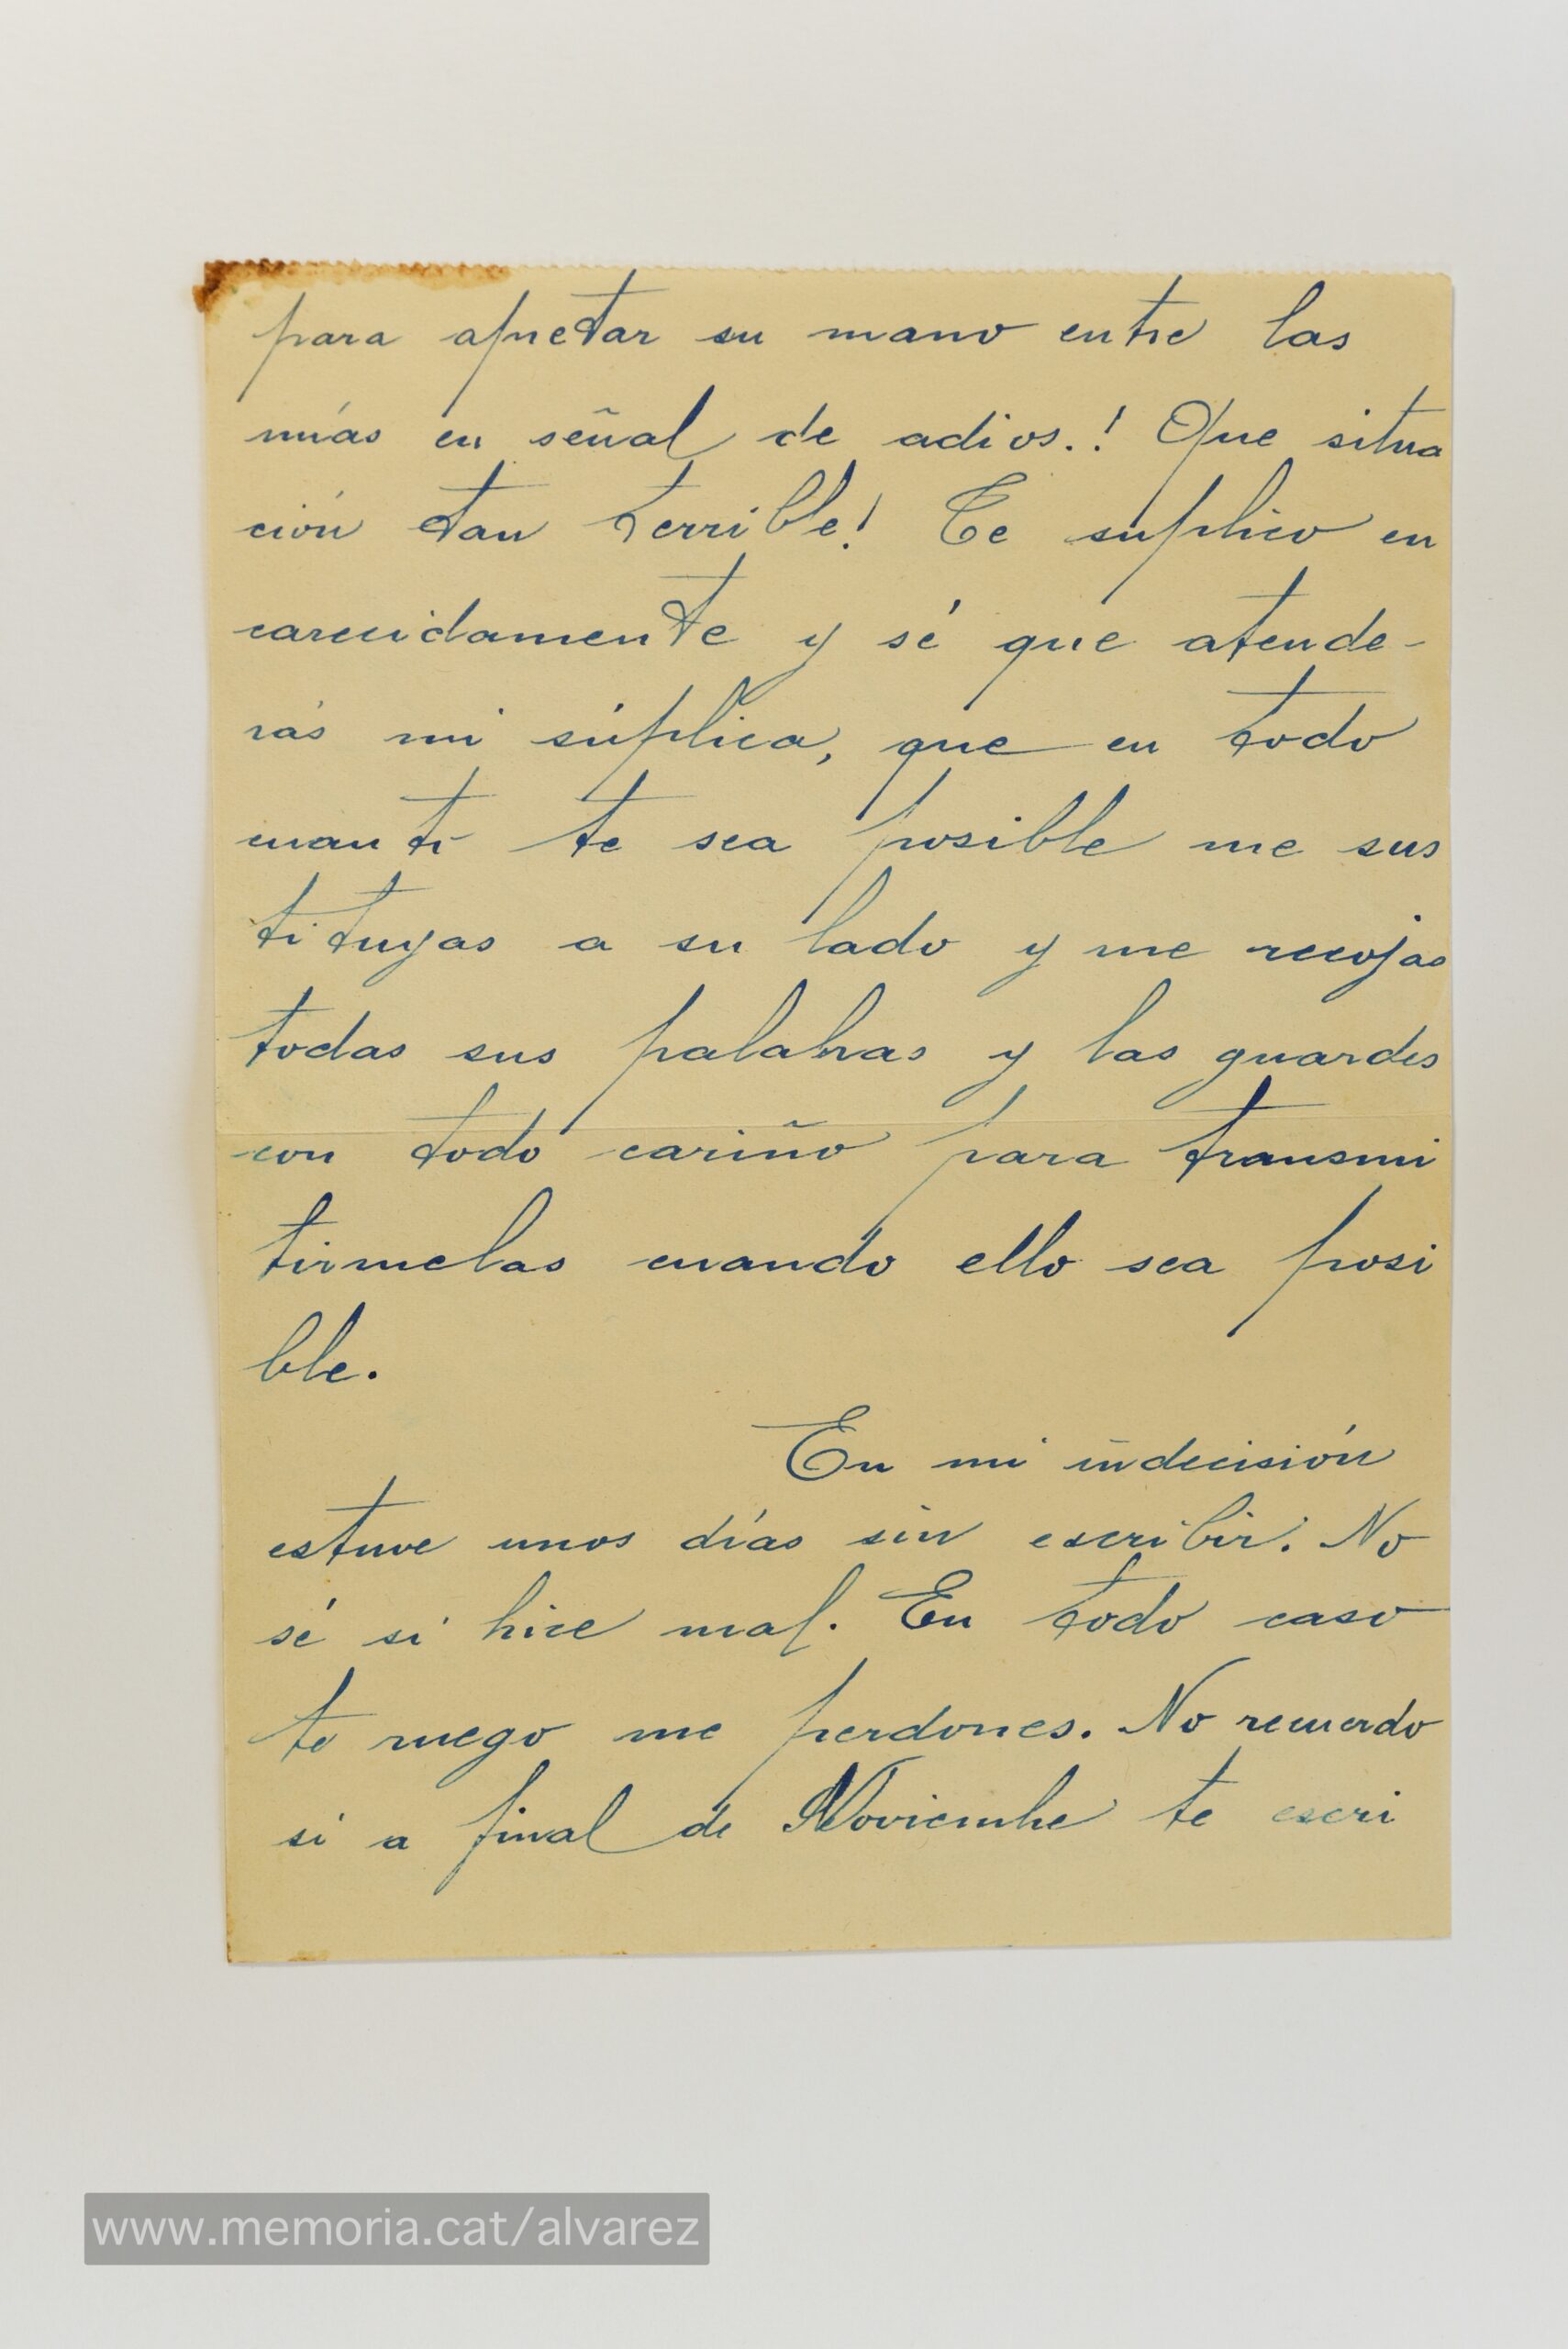 para apretar su mano entre las
mías en señal de adios.! Que situa
ción tan terrible! Te suplico en
carecidamente y sé que atende-
rás mi súplica, que en todo
cuanto te sea posible me sus
tituyas a su lado y me recojas
todas sus palabras y las guardes
con todo cariño para transmi
tirmelas cuando ello sea posi
ble.
En mi indecisión
estuve unos días sin escribir. No
sé si hice mal. En todo caso
te ruego me perdones. No recuerdo
si a final de Noviembre te escri
www.memoria.cat/alvarez